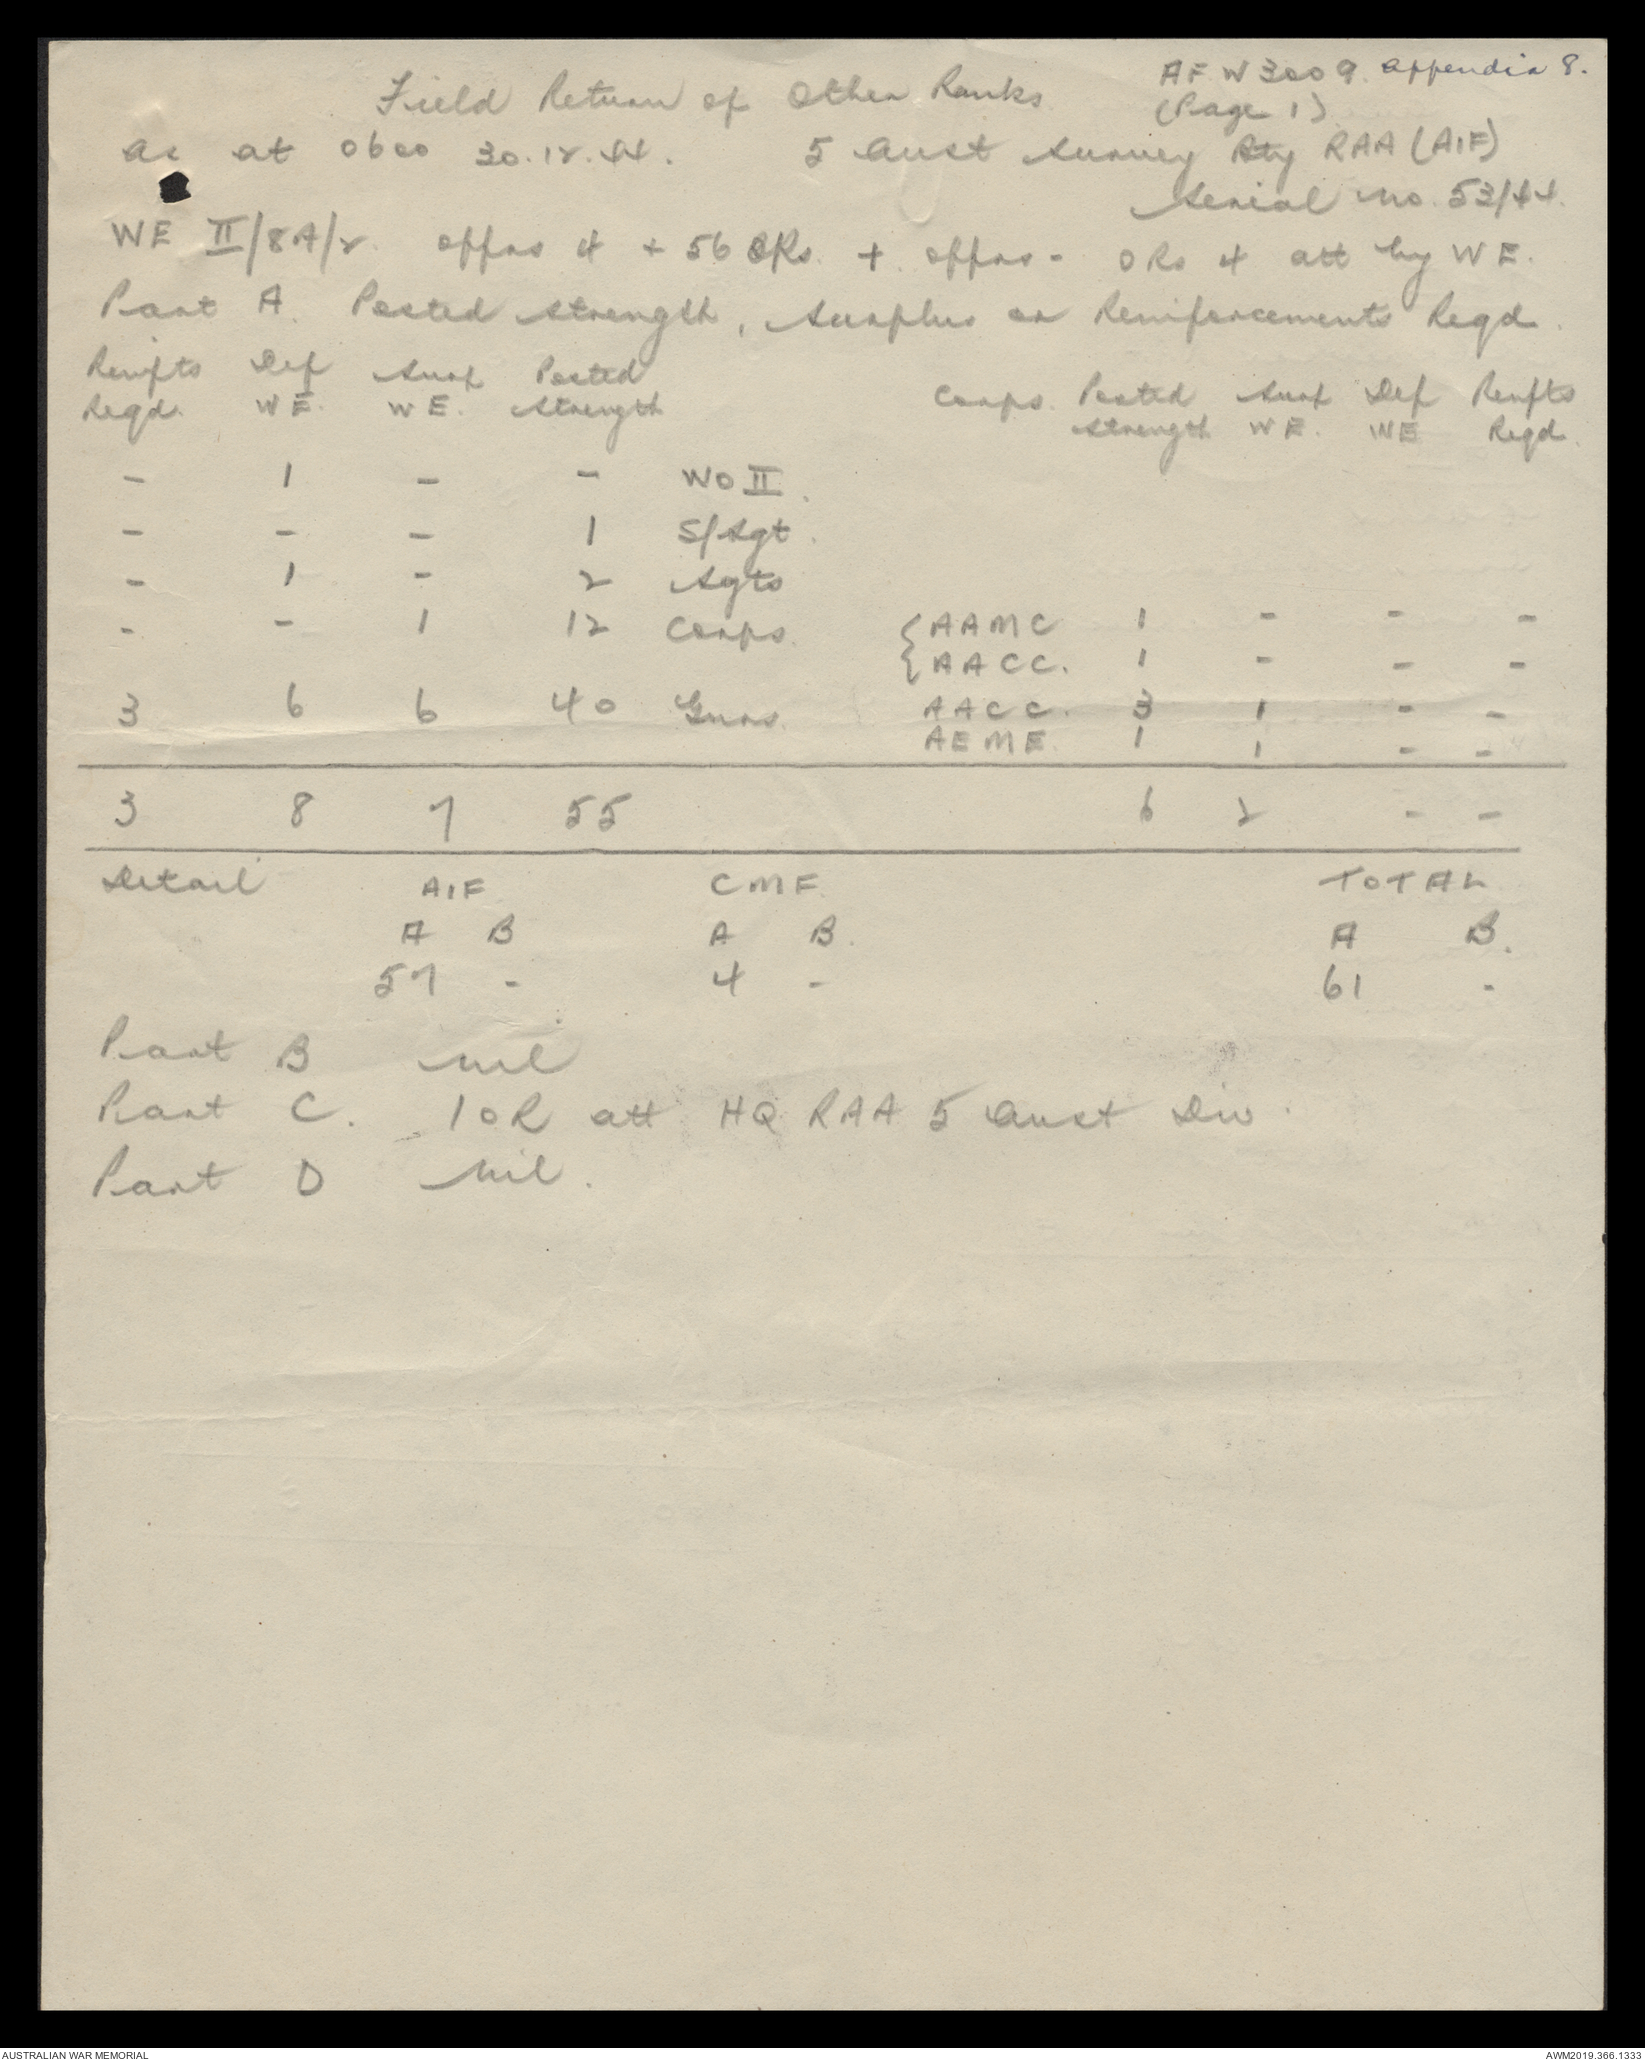 AF W 3009. Appendix 8.
Field Return of Other Ranks (Page 1)
As at 0600 30.12.44. 5 Aust Survey Bty RAA (AIF)
Serial No. 53/44.
WE II/8A/2. offrs 4 + 56 ORs. + offrs - ORs 4 att by WE.
Part A. Posted Strength, Surplus or Reinforcements Reqd.
Reinfts Def Surp Posted Corps. Posted Surp Def Reinfts
Reqd. WE. WE. Strength Strength WE. WE Reqd.
- 1 - - WO II.
- - - 1 S/Sgt.
- 1 - 2 Sgts
- - 1 12 Corps. {AAMC 1 - - -
{AACC. 1 - - -
3 6 6 40 Gnrs. AACC. 3 1 - -
AEME. 1 1 - -
3 8 7 55 6 2 - -
Detail AIF CMF TOTAL
A B A B. A B.
57 - 4 - 61 -
Part B nil
Part C. 1 OR att HQ RAA 5 Aust Div.
Part D nil.
AUSTRALIAN WAR MEMORIAL AWM2019.366.1333